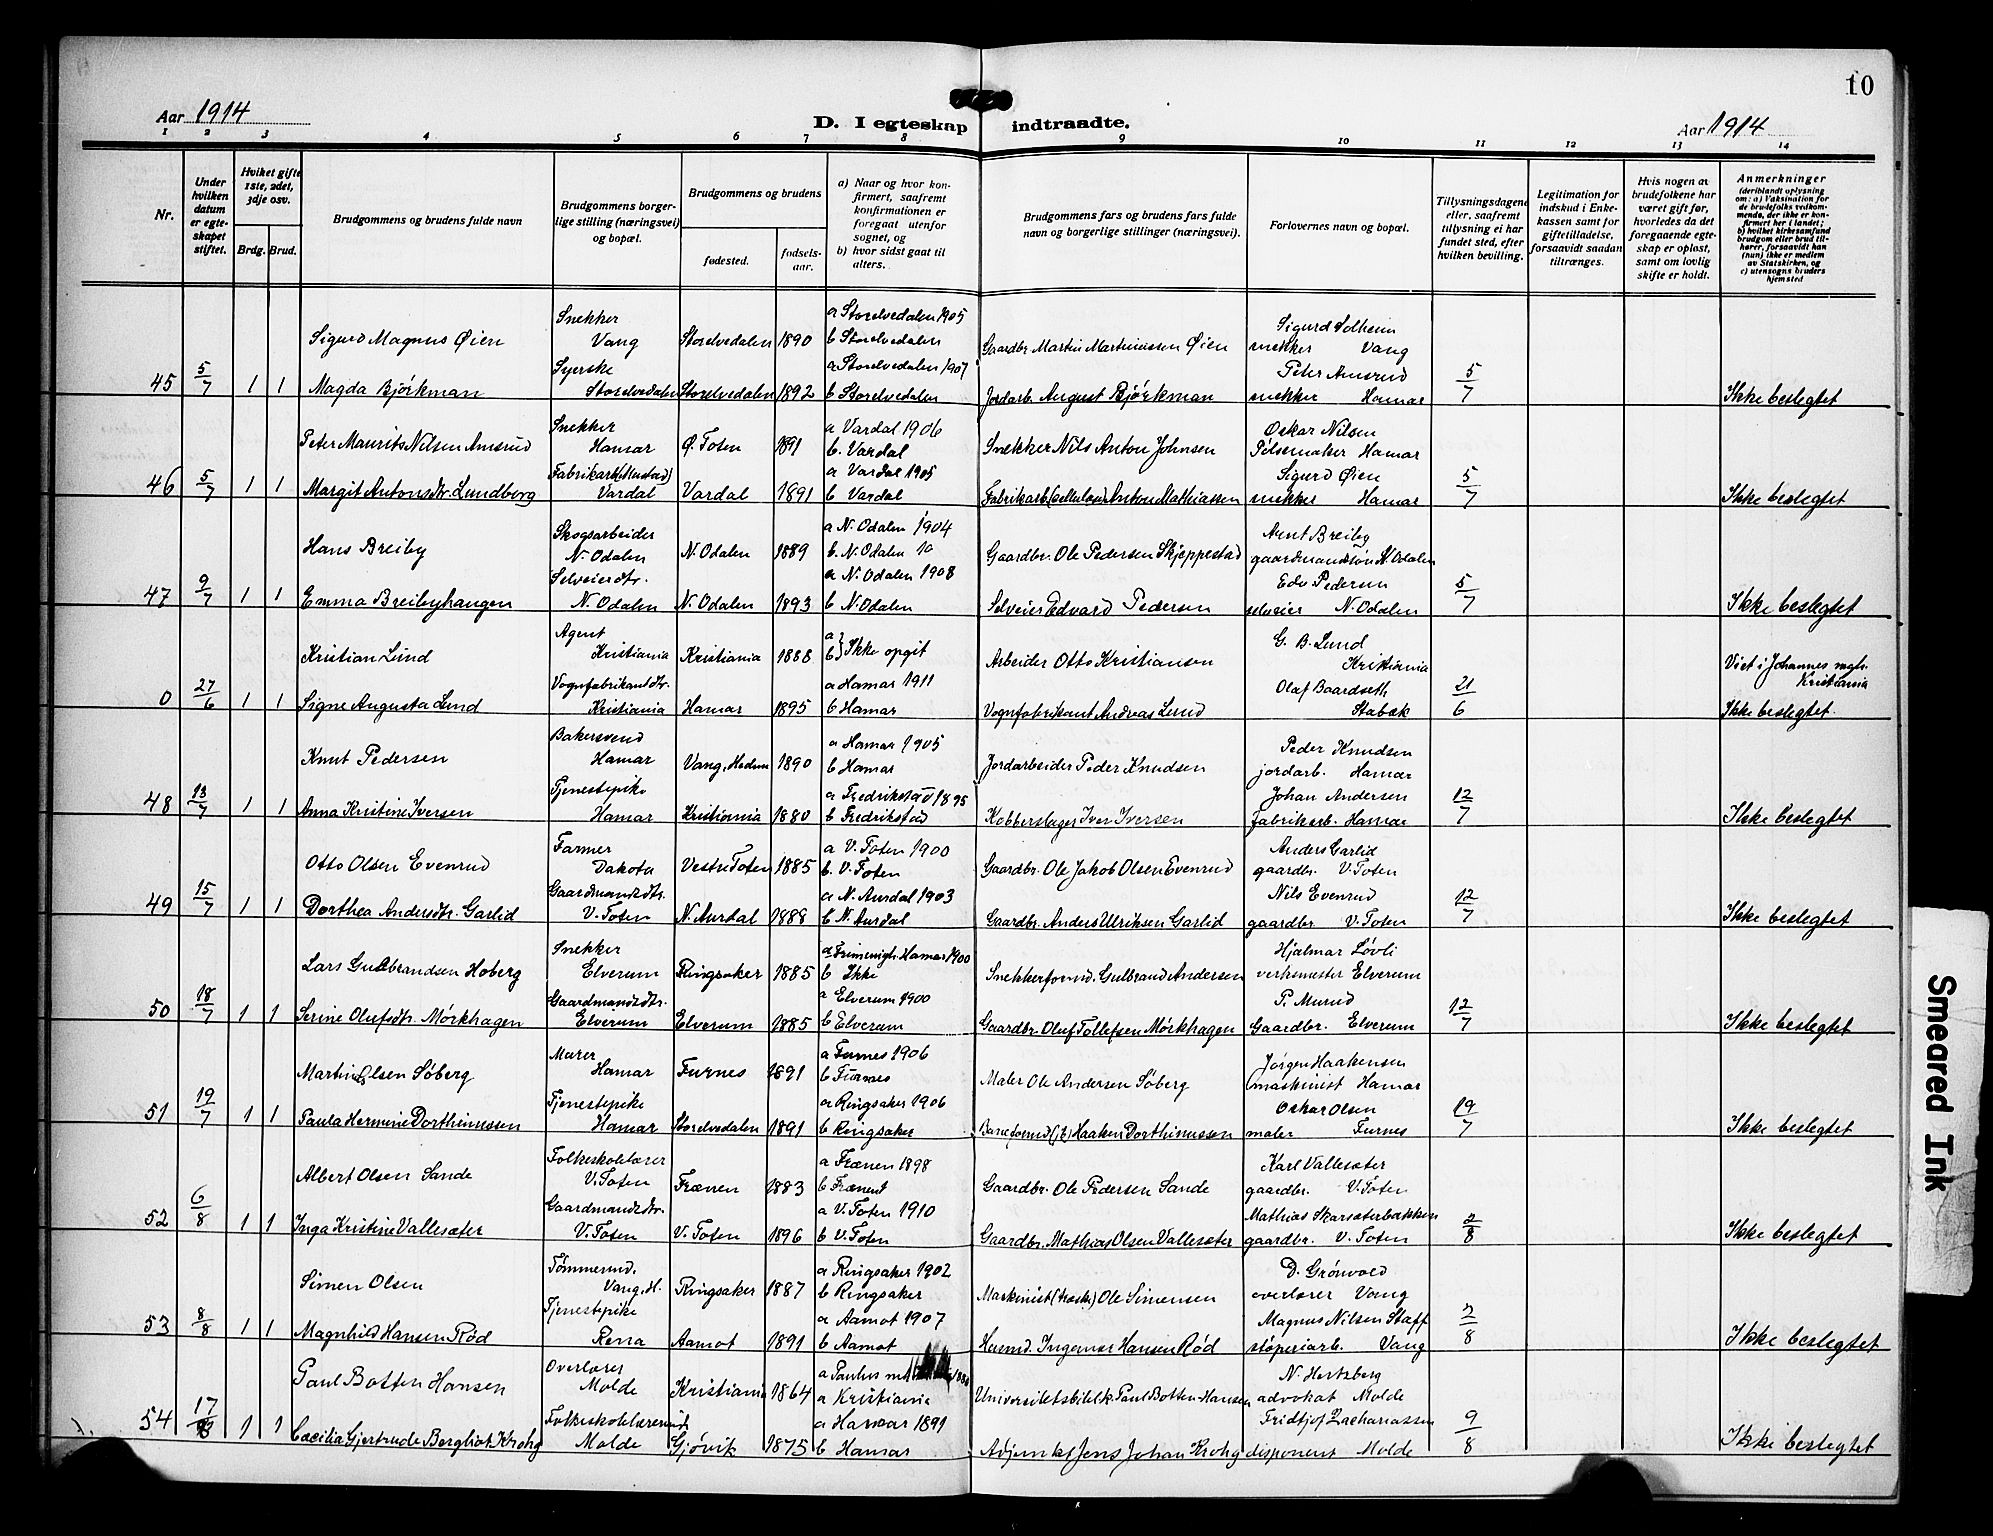 10
Aar 1914
D. I egteskap indtraadte.
Aar 1914
1 2 3 4 5 6 7 8 9 10 11 12 13 14
Nr.
Under hvilken datum er egteskapet stiftet.
Hviket gifte 1ste, 2det, 3dje osv.
Brdg. Brud.
Brudgommens og brudens fulde navn
Brudgommens borgerlige stilling (næringsvei) og bopæl.
Brudgommens og brudens
fødested.
fødselsaar.
a) Naar og hvor konfirmert, saafremt konfirmationen er foregaat utenfor sognet, og
b) hvor sidst gaat til alters.
Brudgommens fars og brudens fars fulde navn og borgerlige stillinger (næringsvei).
Forlovernes navn og bopæl.
Tillysningsdagene eller, saafremt tillysning ei har fundet sted, efter hvilken bevilling.
Legitimation for indskud i Enkekassen samt for giftetilladelse, forsaavidt saadan tiltrænges.
Hvis nogen av brudefolkene har været gift før, hvorledes da det foregaaende egteskap er opløst, samt om lovlig skifte er holdt.
Anmerkninger
(deriblandt oplysning om: a) Vaksination for de brudefolks vedkommende, der ikke er konfirmert her i landet; b) hvilket kirkesamfund brudgom eller brud tilhører, forsaavidt han (hun) ikke er medlem av Statskirken, og c) utensogns bruders hjemsted
Sigurd Magnus Øien Snekker Vang Storelvedalen 1890 a Storelvedalen 1905 b Storelvedalen Gaardbr. Martin Martinussen Øien Sigurd Solheim snekker Vang
45 5/7 1 1 Magda Björkman Syerske Storelvedalen Storelvedalen 1892 a Storelvedalen 1907 b Storelvedalen Jordarb. August Björkman Peter Amsrud snekker Hamar 5/7 Ikke beslegtet
Peter Maurits Nilsen Amsrud Snekker Hamar Ø. Toten 1891 a Vardal 1906 b. Vardal Snekker Nils Anton Johnsen Oskar Nilsen Pölsemaker Hamar
46 5/7 1 1 Margit Antonsdtr. Lundberg Fabrikarb. (Mustad) Vardal Vardal 1891 a Vardal 1905 b Vardal Fabrikarb. (cellulose) Anton Mathiassen Sigurd Øien snekker Hamar 5/7 Ikke beslegtet
Hans Breiby Skogsarbeider N. Odalen N. Odalen 1889 a N. Odalen 1904 b. N. Odalen 10 Gaardbr. Ole Pedersen Skjeppestad Arnt Breiby gaardmandssøn N. Odalen
47 9/7 1 1 Emma Breibyhaugen Selveierdtr. N. Odalen N. Odalen 1893 a N. Odalen 1908 b N. Odalen Selveier Edvard Pedersen Edv Pedersen selveier N. Odalen 5/7 Ikke beslegtet
Kristian Lund Agent Kristiania Kristiania 1888 a} b} Ikke opgit Arbeider Otto Kristiansen G. B. Lund Kristiania Viet i Johannes mgh. Kristiania
0 27/6 1 1 Signe Augusta Lund Vognfabrikantdtr. Kristiania Hamar 1895 a Hamar 1911 b Hamar Vognfabrikant Andreas Lund Olaf Baardseth Stabæk 21/6 Ikke beslegtet.
Knut Pedersen Bakersvend Hamar Vang, Hedm 1890 a Hamar 1905 b Hamar Jordarbeider Peder Knudsen Peder Knudsen jordarb. Hamar
48 13/7 1 1 Anna Kristine Iversen Tjenestepike Hamar Kristiania 1880 a Fredrikstad 1895 b Fredrikstad Kobberslager Iver Iversen Johan Andersen fabrikarb. Hamar 12/7 Ikke beslegtet
Otto Olsen Evenrud Farmer Dakota Vestre Toten 1885 a V. Toten 1900 b. V. Toten Gaardbr. Ole Jakob Olsen Evenrud Anders Garlid gaardbr. V. Toten
49 15/7 1 1 Dorthea Andersdtr. Garlid Gaardmandsdtr. V. Toten N. Aurdal 1888 a N. Aurdal 1903 b N. Aurdal Gaardbr. Anders Ulriksen Garlid Nils Evenrud gaardbr V. Toten 12/7 Ikke beslegtet
Lars Gulbrandsen Hoberg Snekker Elverum Ringsaker 1885 a Frimenigh. Hamar 1900 b Ikke Snekkerformd. Gulbrand Andersen Hjalmar Løvli verksmester Elverum
50 18/7 1 1 Serine Olufsdtr. Mörkhagen Gaardmandsdtr. Elverum Elverum 1885 a Elverum 1900 b Elverum Gaardbr. Oluf Tollefsen Mörkhagen P. Murud Gaardbr. Elverum 12/7 Ikke beslegtet
Martin Olsen Söberg Murer Hamar Furnes 1891 a Furnes 1906 b Furnes Maler Ole Andersen Söberg Jörgen Haakensen maskinist Hamar
51 19/7 1 1 Paula Hermine Dorthinussen Tjenestepike Hamar Storelvedalen 1891 a Ringsaker 1906 b Ringsaker Haaken Dorthinussen Oskar Olsen maler Furnes 19/7 Ikke beslegtet
Albert Olsen Sande Folkeskolelærer V. Toten Frænen 1883 a Frænen 1898 b Frænen Gaardbr. Ole Pedersen Sande Karl Vallesæter gaardbr. V. Toten
52 6/8 1 1 Inga Kristine Vallesæter Gaardmandsdtr. V. Toten V. Toten 1896 a V. Toten 1910 b V. Toten Gaardbr. Mathias Olsen Vallesæter Mathias Skarsæterbakken gaardbr. V. Toten 2/8 Ikke beslegtet
Simen Olsen Tömmermd. Vang, H. Ringsaker 1887 a Ringsaker 1902 b Ringsaker Maskinist Ole Simensen D. Grönvold overlærer Vang
53 8/8 1 1 Magnhild Hansen Röd Tjenestepike Rena Aamot 1891 a Aamot 1907 b Aamot Ingemar Hansen Röd Magnus Nilsen Staff stöperiarb. Vang 2/8 Ikke beslegtet
Paul Botten Hansen Overlærer Molde Kristiania 1864 a Paulus m a Kristiania Universitetsbiblk. Paul Botten-Hansen N. Hertzberg advokat Molde
54 17/8 1 1 Cæcilia Gjertrude Bergliot Krohg Folkeskolelærerinde Molde Gjövik 1875 a Hamar 1891 b Hamar Adjunkt Jens Johan Krohg Fridtjof Zachariassen disponent Molde 9/8 Ikke beslegtet
Smeared Ink